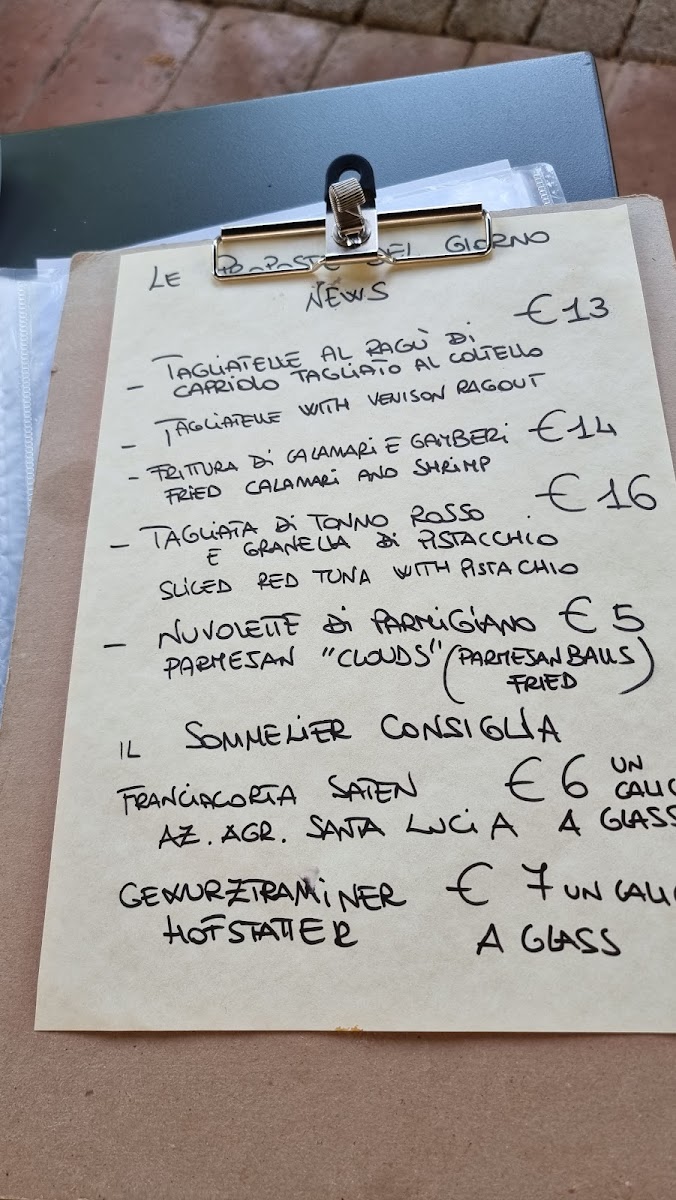 LE PROPOSTE DEL GIORNO
NEWS
- TAGLIATELLE AL RAGÙ DI € 13
CAPRIOLO TAGLIATO AL COLTELLO
- TAGLIATELLE WITH VENISON RAGOUT
- FRITTURA DI CALAMARI E GAMBERI € 14
FRIED CALAMARI AND SHRIMP
- TAGLIATA DI TONNO ROSSO € 16
E GRANELLA DI PISTACCHIO
SLICED RED TUNA WITH PISTACHIO
- NUVOLETTE DI PARMIGIANO € 5
PARMESAN "CLOUDS" (PARMESAN BALLS
FRIED)
IL SOMMELIER CONSIGLIA
FRANCIACORTA SATEN € 6 UN
CALIC
AZ. AGR. SANTA LUCIA A GLASS
GEWURZTRAMINER € 7 UN CALI
HOFSTATTER A GLASS